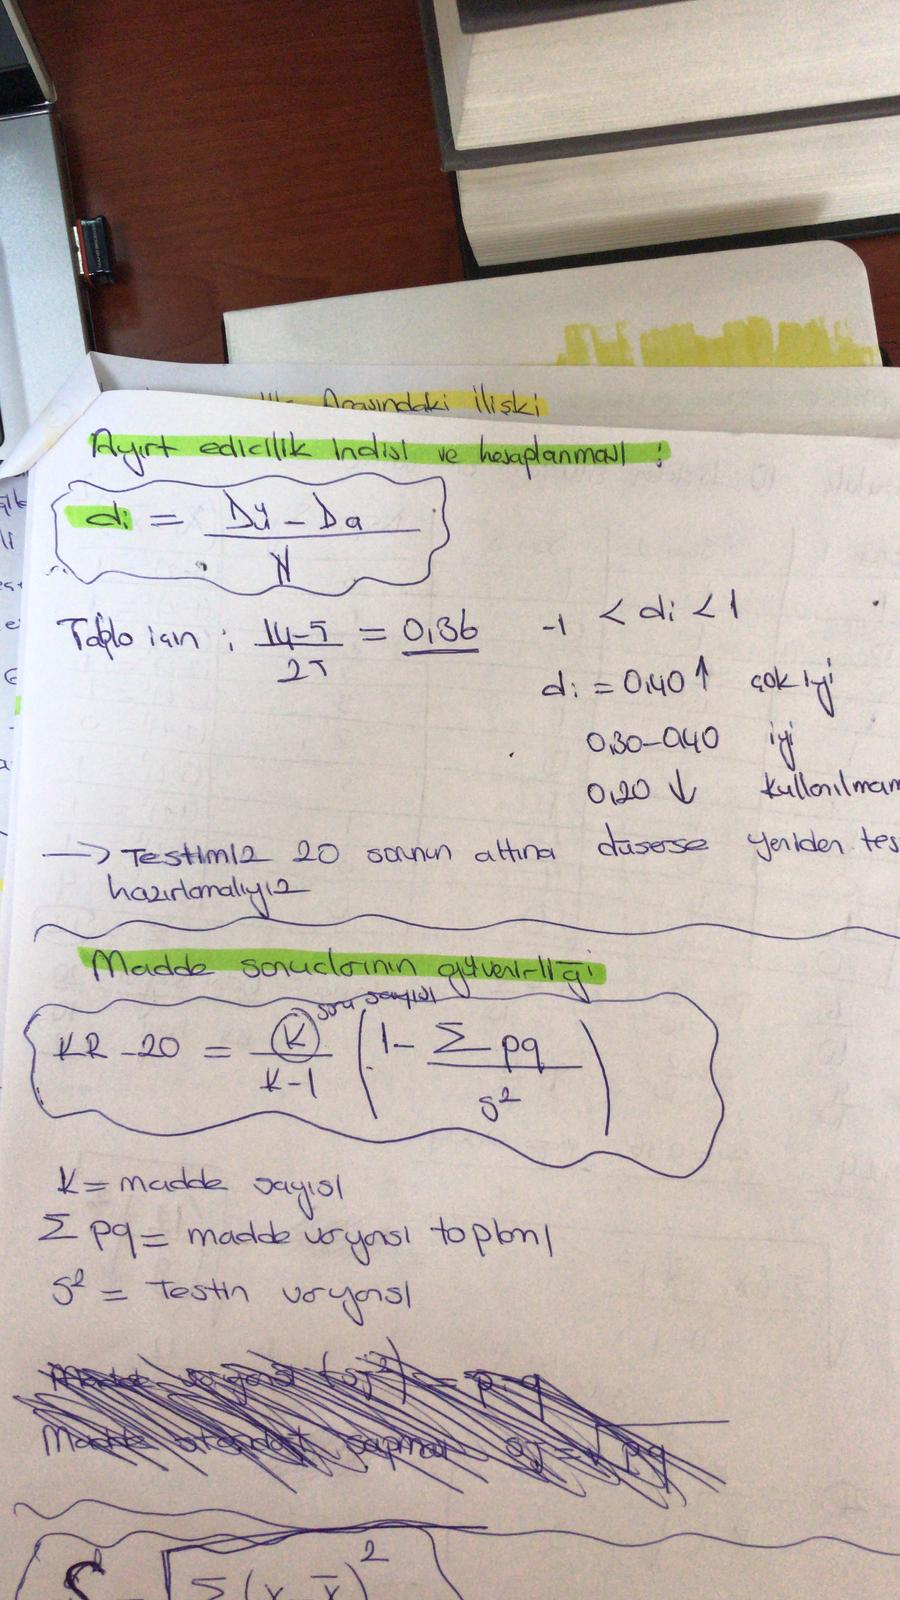 Arasındaki ilişki
Ayırt edicilik Indisi ve hesaplanması :
di = Dü - Da / N
Tablo için : 14-5 / 25 = 0,36
-1 < di < 1
di = 0,40 ↑ çok iyi
0,30-0,40 iyi
0,20 ↓ kullanılmam
→ Testimiz 20 sorunun altına düşerse yeniden tes
hazırlamalıyız
Madde sonuclarının güvenirliği
soru sayısı
KR-20 = K / K-1 ( 1 - Σ pq / s² )
K = madde sayısı
Σ pq = madde varyansı toplamı
s² = Testin varyansı
Madde varyansı (sj²) = p.q
Madde standart sapması sj = √pq
S = √ Σ (x - x̄)²